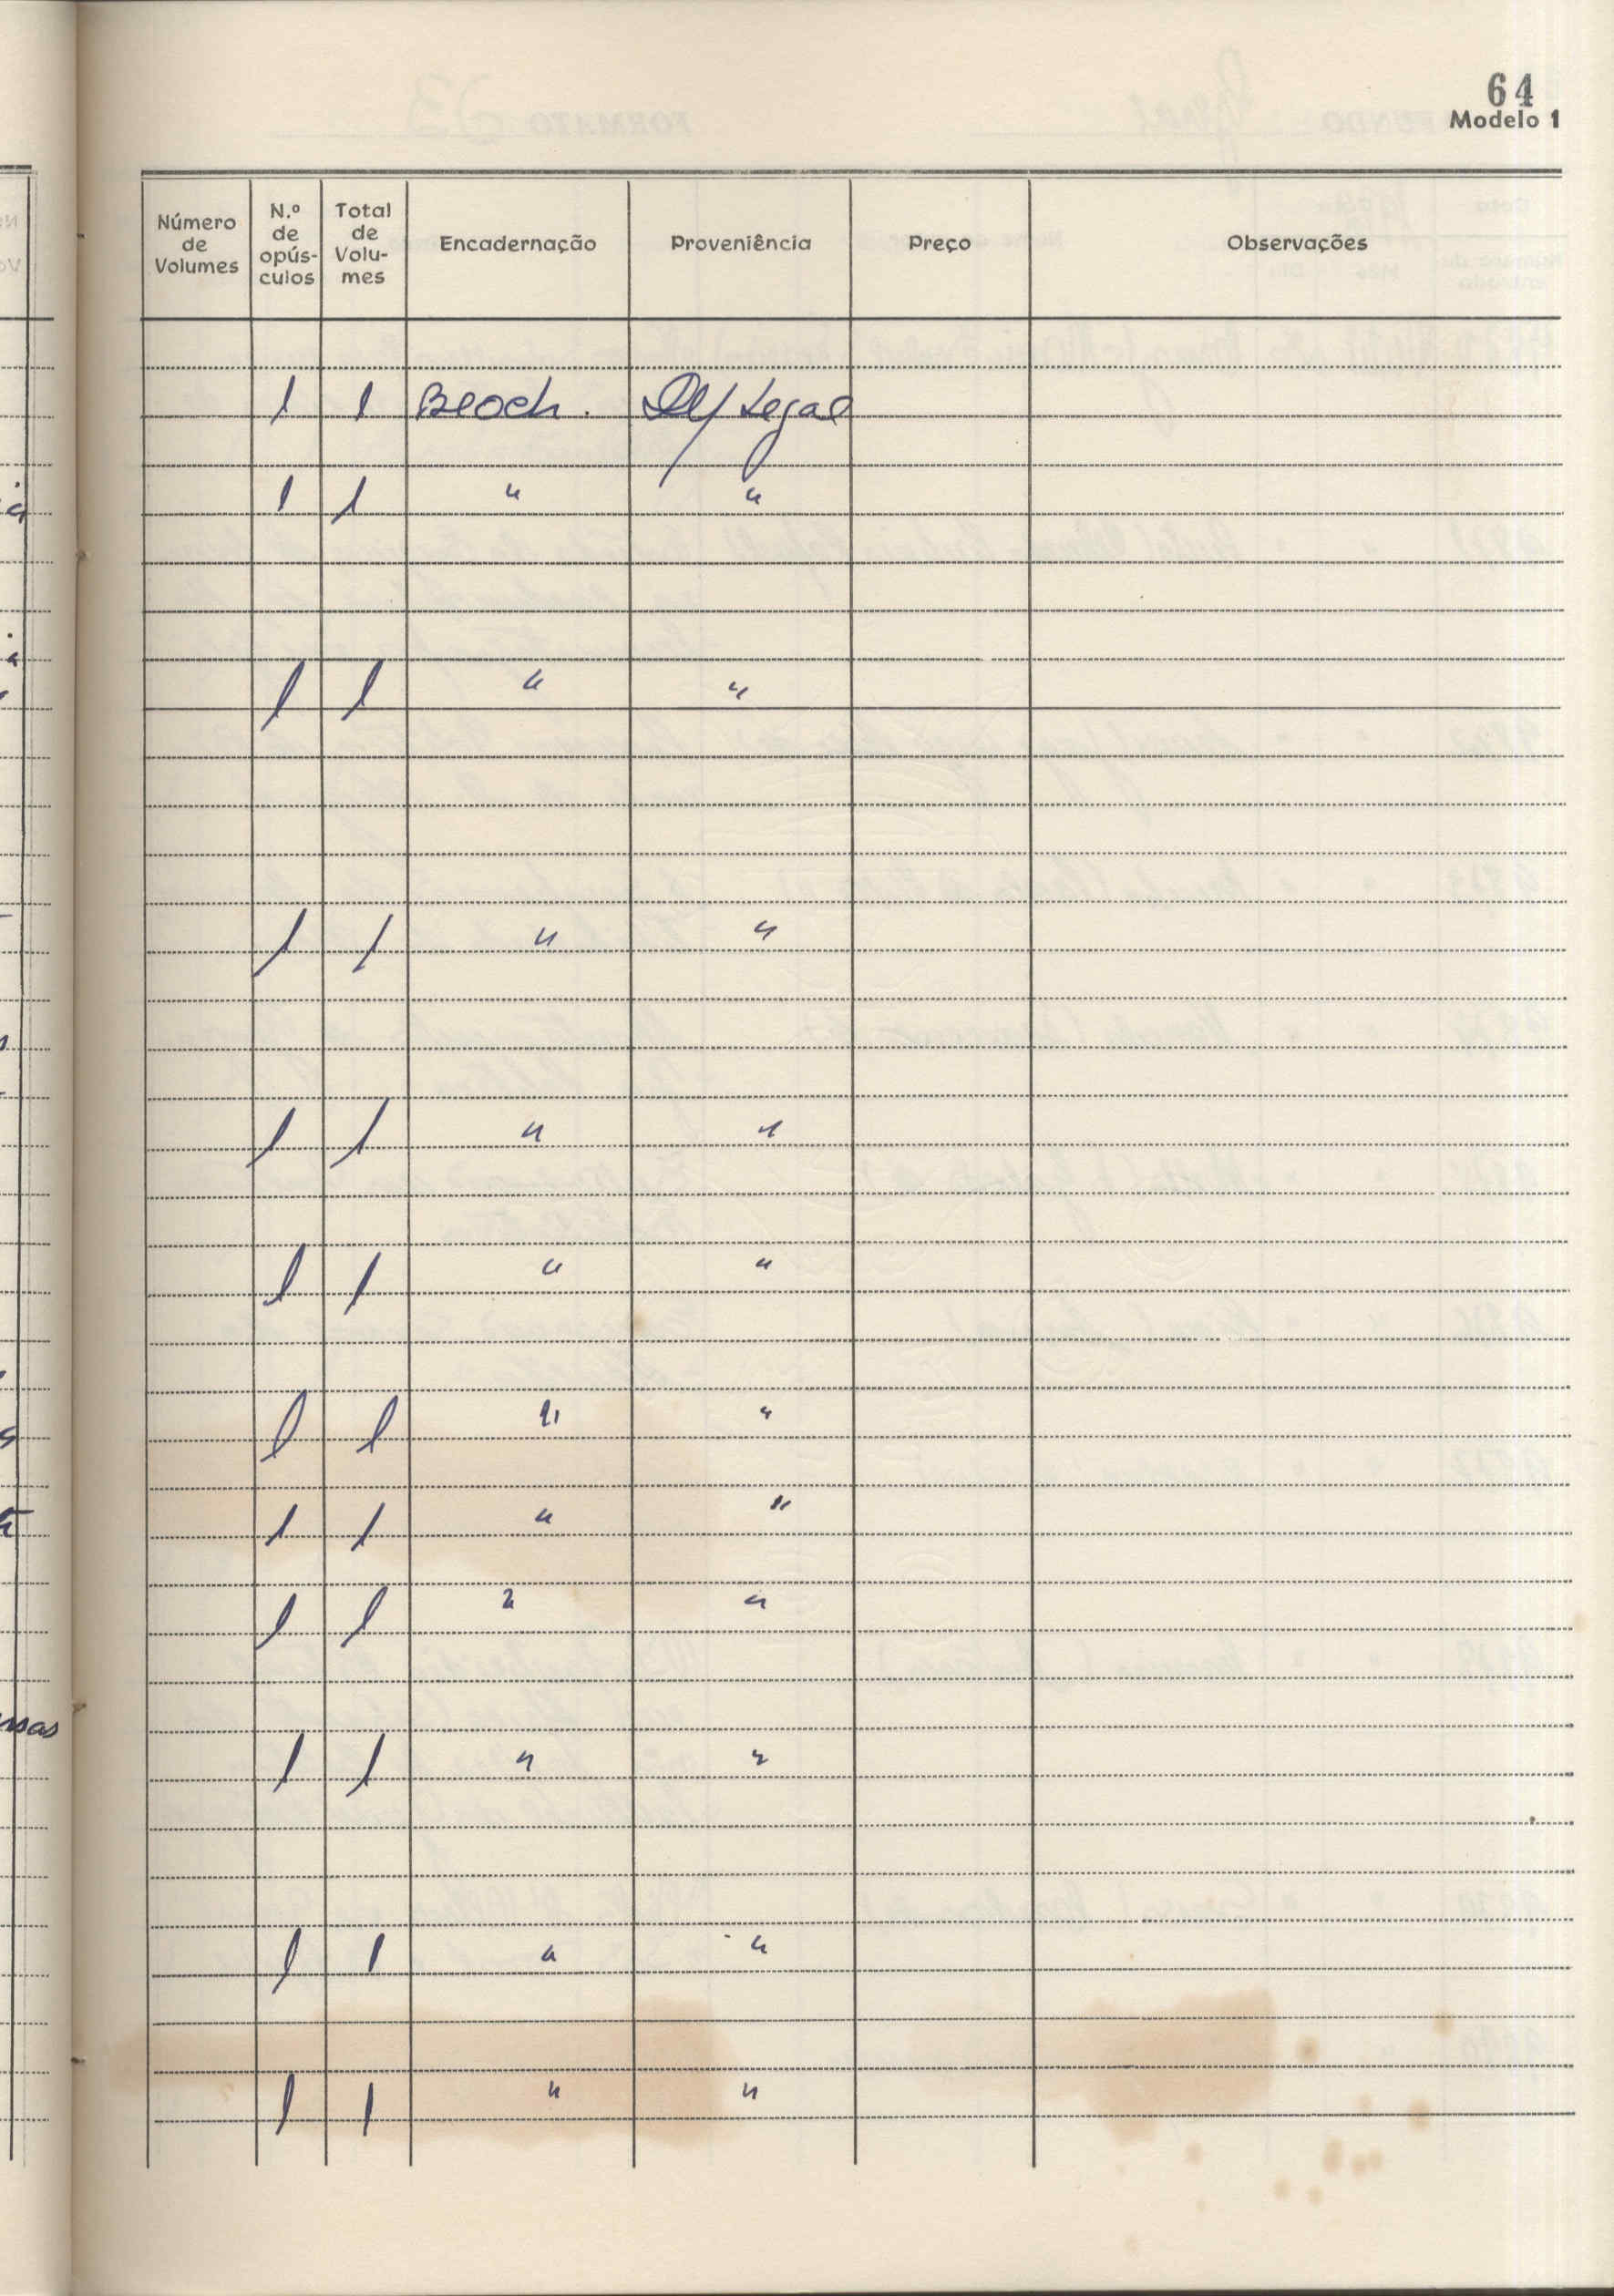 64
Modelo 1
Número de Volumes | N.º de opús-culos | Total de Volu-mes | Encadernação | Proveniência | Preço | Observações
1 1 Broch. Dep Legal
1 1 " "
1 1 " "
1 1 " "
1 1 " "
1 1 " "
1 1 " "
1 1 " "
1 1 " "
1 1 " "
1 1 " "
1 1 " "